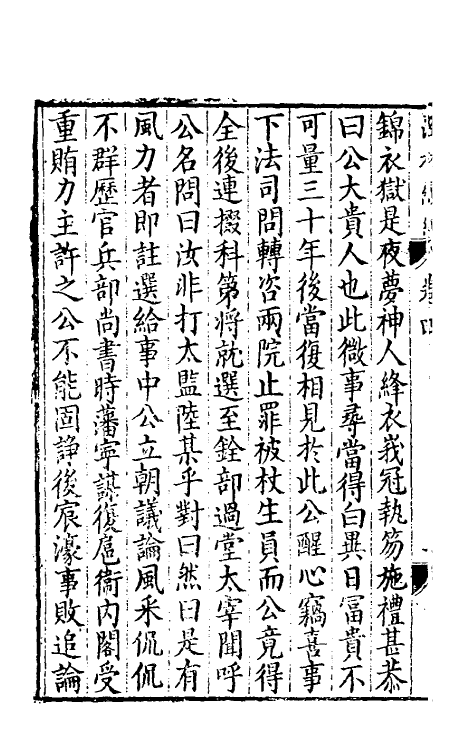 卷四
錦衣獄是夜夢神人絳衣峩冠執笏施禮甚恭
曰公大貴人也此微事尋當得白異日冨貴不
可量三十年後當復相見於此公醒心竊喜事
下法司問轉咨兩院止罪被杖生員而公竟得
全後連掇科第將就選至銓部過堂太宰聞呼
公名問曰汝非打太監陸某乎對曰然曰是有
風力者即註選給事中公立朝議論風采侃侃
不群歷官兵部尚書時藩寧謀復扈衞内閣受
重賄力主許之公不能固諍後宸濠事敗追論